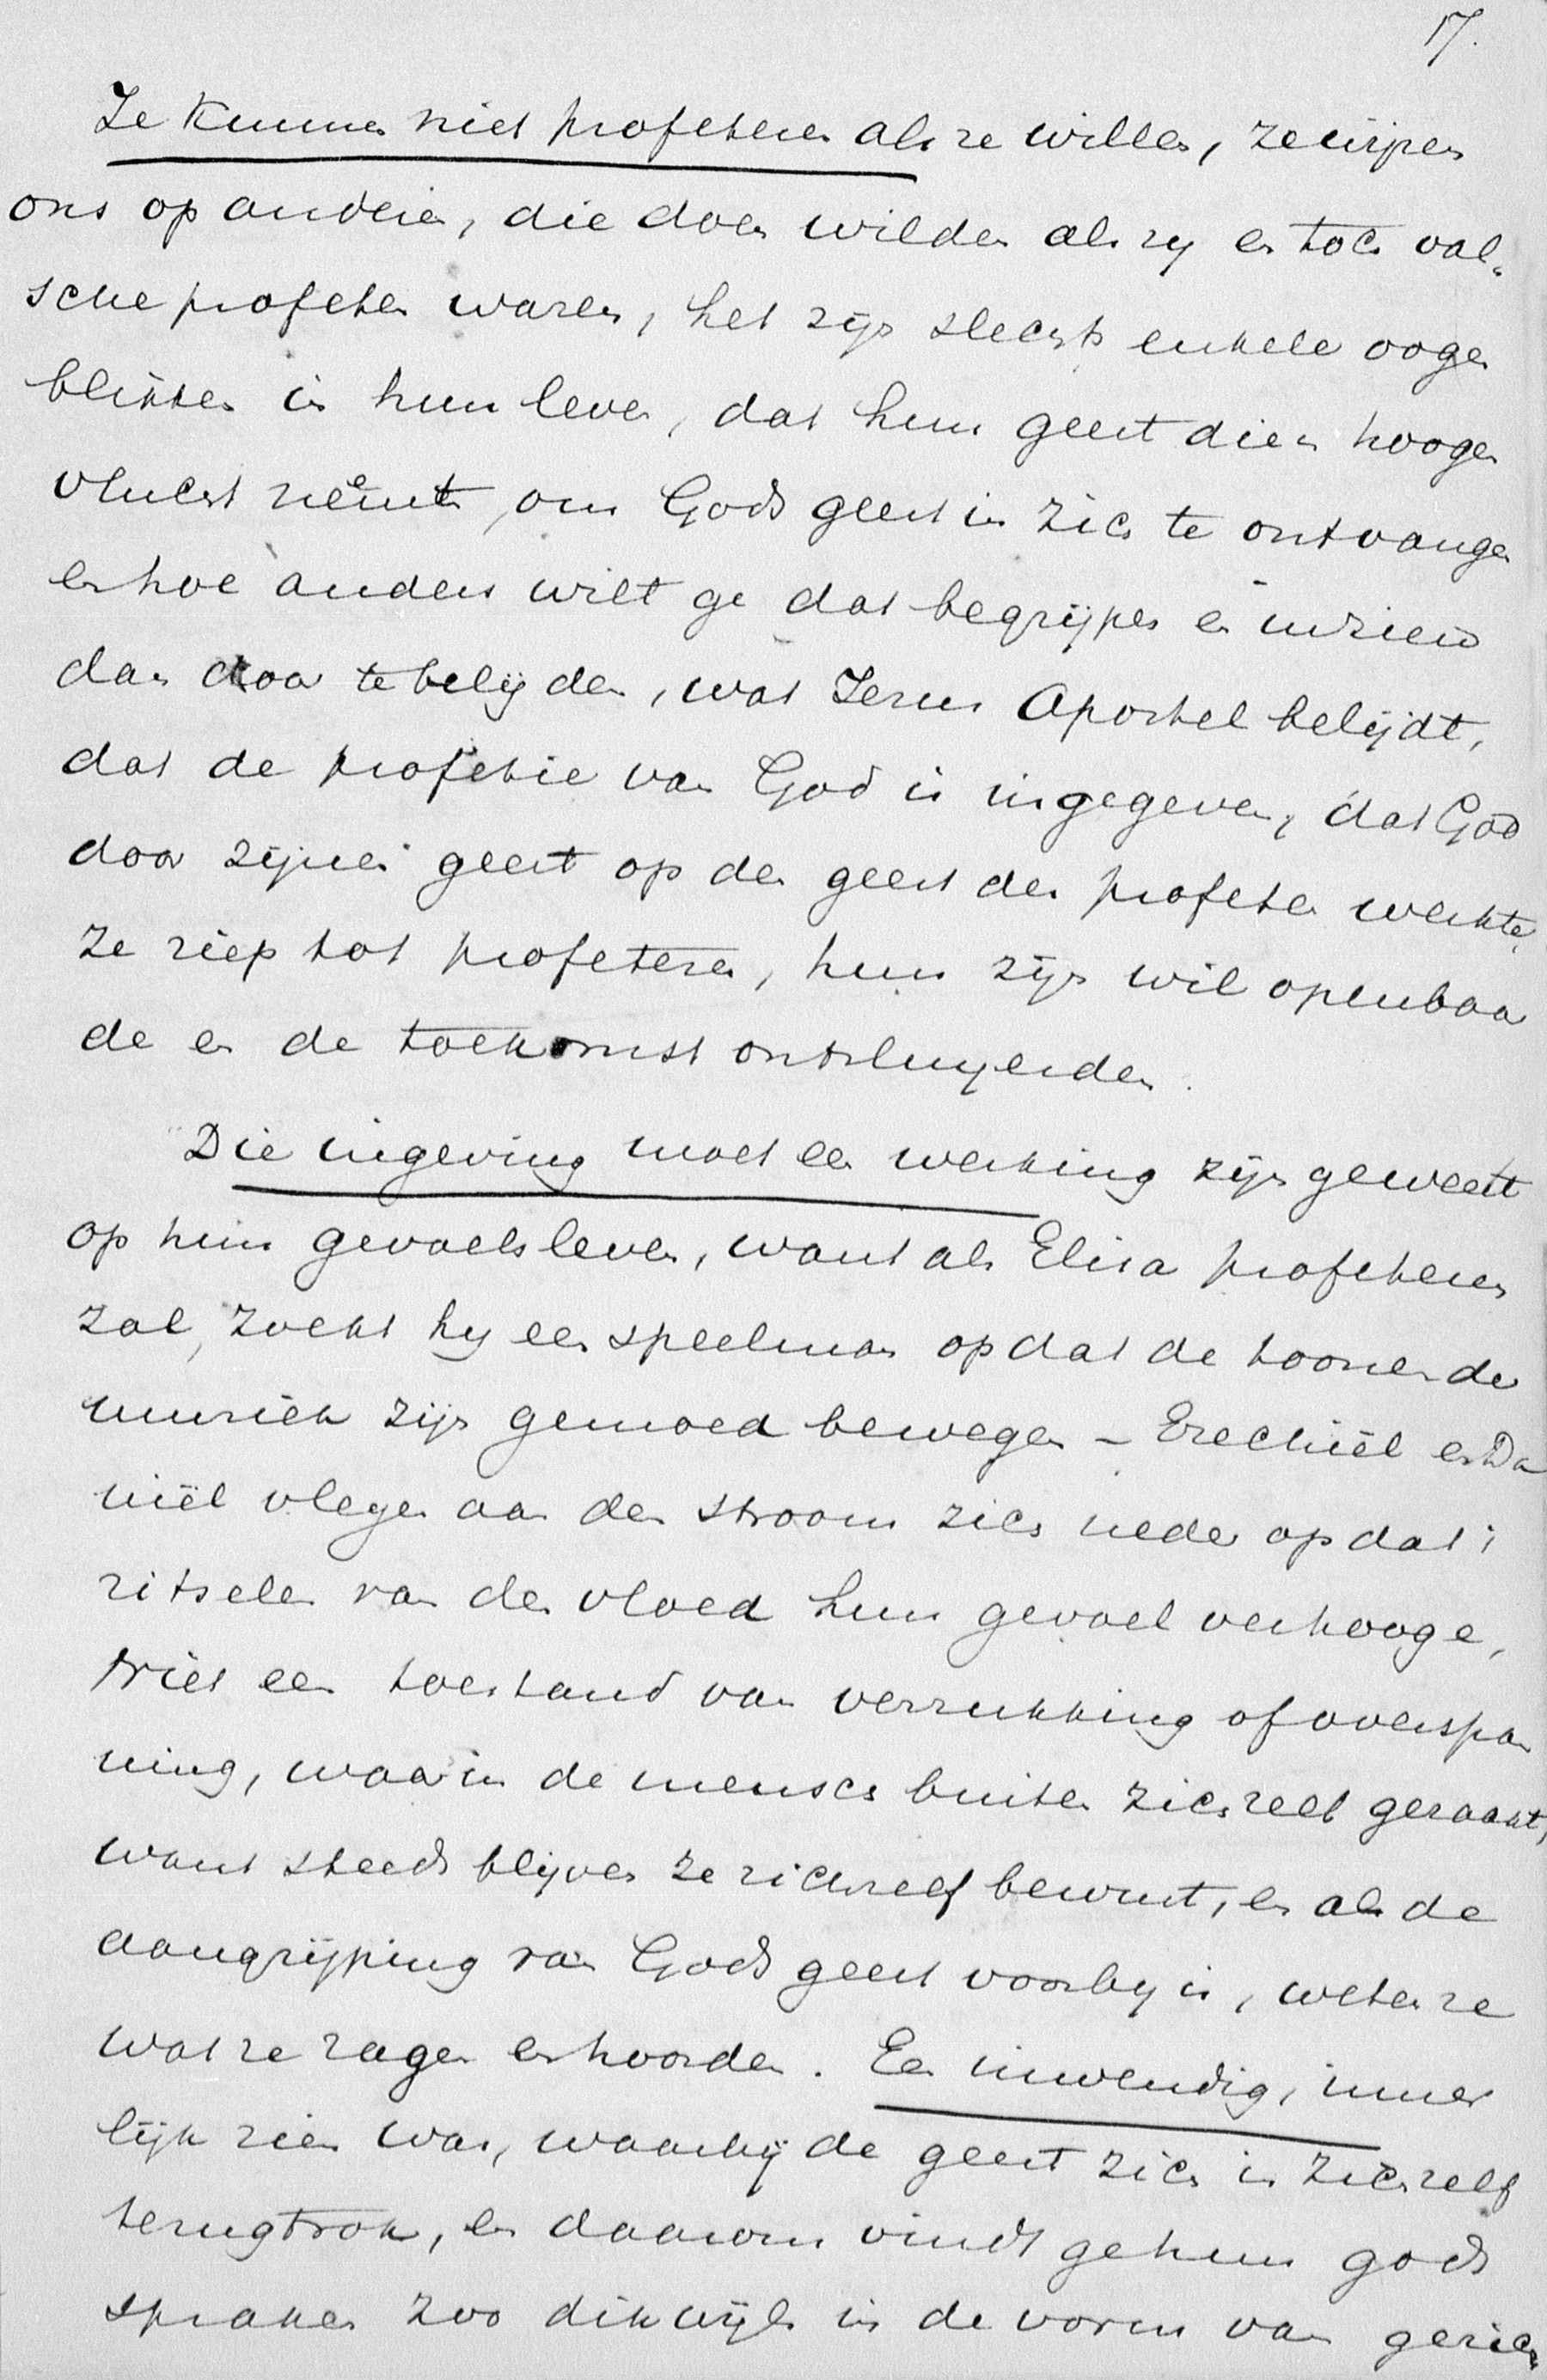 17.
Ze kunnen niet profeteren als ze willen, ze wijzen
ons op anderen, die doen wilden als zy en toch val-
sche profeten waren, het zijn slechts enkele oogen
blikken in hun leven, dat hun geest dien hoogen
vlucht neemt, om Gods geest in zich te ontvangen
en hoe anders wilt ge dat begrijpen en inzien
dan door te belijden, wat Jezus Apostel belijdt,
dat de profetie van God is ingegeven, dat God
door zijnen geest op den geest der profeten werkte,
ze riep tot profeteren, hun zijn wil openbaar
de en de toekomst ontsluyerden.
Die ingeving moet een werking zijn geweest
op hun gevoelsleven, want als Elisa profeteren
zal, zoekt hy een speelman opdat de toonen der
muziek zijn gemoed bewegen - Ezechiël en Da
niël vlegen aan den stroom zich neder opdat 't
ritselen van den vloed hun gevoel verhooge,
Niet een toestand van verrukking of overspan
ning, waarin de mensch buiten zichzelf geraakt,
want steeds blijven ze zichzelf bewust, en als de
aangrijping van Gods geest voorby is, weten ze
wat ze zagen en hoorden. Een inwendig, inner
lijk zien was, waarbij de geest zich in zichzelf
terugtrok, en daarom vindt ge hun gods
spraken zoo dikwijls in de vorm van gezich